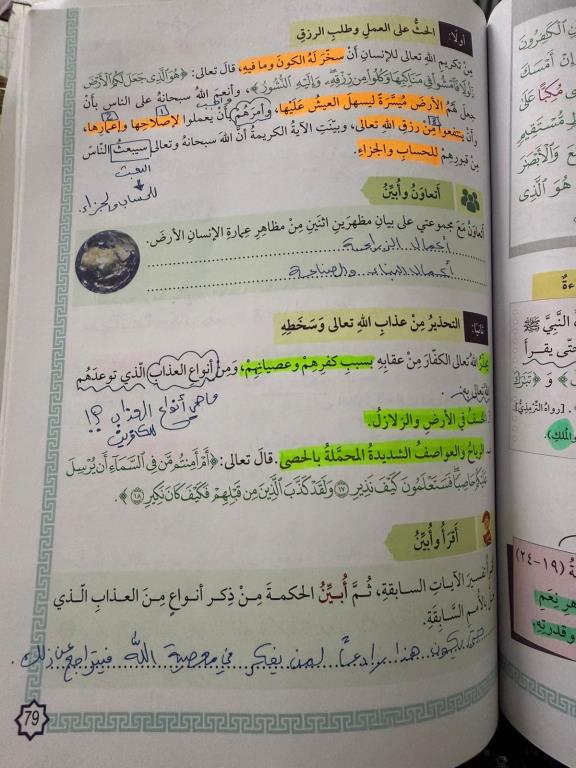 أولًا: الحثُّ على العملِ وطلبِ الرزقِ
مِنْ تكريمِ اللهِ تعالى للإنسانِ أنْ سخّرَ لَهُ الكونَ وما فيهِ، قالَ تعالى: ﴿هُوَ ٱلَّذِى جَعَلَ لَكُمُ ٱلْأَرْضَ
ذَلُولًا فَٱمْشُوا۟ فِى مَنَاكِبِهَا وَكُلُوا۟ مِن رِّزْقِهِۦ وَإِلَيْهِ ٱلنُّشُورُ﴾، وأنعمَ اللهُ سبحانهُ على الناسِ بأنْ
جعلَ لهُمُ الأرضَ مُيسَّرةً ليسهلَ العيشُ عَلَيْها، وأمرَهُمْ بأنْ يعملوا لإصلاحِها وإعمارِها،
وأنْ ينتفعوا مِنْ رزقِ اللهِ تعالى، وبيّنَتِ الآيةُ الكريمةُ أنَّ اللهَ سبحانهُ وتعالى سيبعثُ الناسَ
مِنْ قبورِهِمْ للحسابِ والجزاءِ.
البعث
للحساب والجزاء.
أتعاونُ وأُبيِّنُ
أتعاونُ مَعَ مجموعتي على بيانِ مظهرَينِ اثنَينِ مِنْ مظاهرِ عِمارةِ الإنسانِ الأرضَ.
أعمال الزراعة
أعمال البناء والصناعة
ثانيًا: التحذيرُ مِنْ عذابِ اللهِ تعالى وَسَخَطِهِ
اللهُ تعالى الكفّارَ مِنْ عقابِهِ بسببِ كفرِهِمْ وعصيانِهِمْ، وَمِنْ أنواعِ العذابِ الّذي توعدَهُم
اللهُ تعالى بهِ:
ما هي أنواع العذاب ؟!
الخسفُ في الأرضِ والزلازلُ.
ب. الرياحُ والعواصفُ الشديدةُ المحمَّلةُ بالحصى. قالَ تعالى: ﴿أَمْ أَمِنتُم مَّن فِى ٱلسَّمَآءِ أَن يُرْسِلَ
عَلَيْكُمْ حَاصِبًا فَسَتَعْلَمُونَ كَيْفَ نَذِيرِ ۝١٧ وَلَقَدْ كَذَّبَ ٱلَّذِينَ مِن قَبْلِهِمْ فَكَيْفَ كَانَ نَكِيرِ ۝١٨﴾.
أقرأُ وأُبيِّنُ
تفسيرَ الآياتِ السابقةِ، ثُمَّ أُبيِّنُ الحكمةَ مِنْ ذِكرِ أنواعٍ مِنَ العذابِ الّذي
بالأممِ السَّابقةِ.
حتى يكون هذا رادعًا لمن يفكر في معصية الله فيتراجع عن ذلك.
79